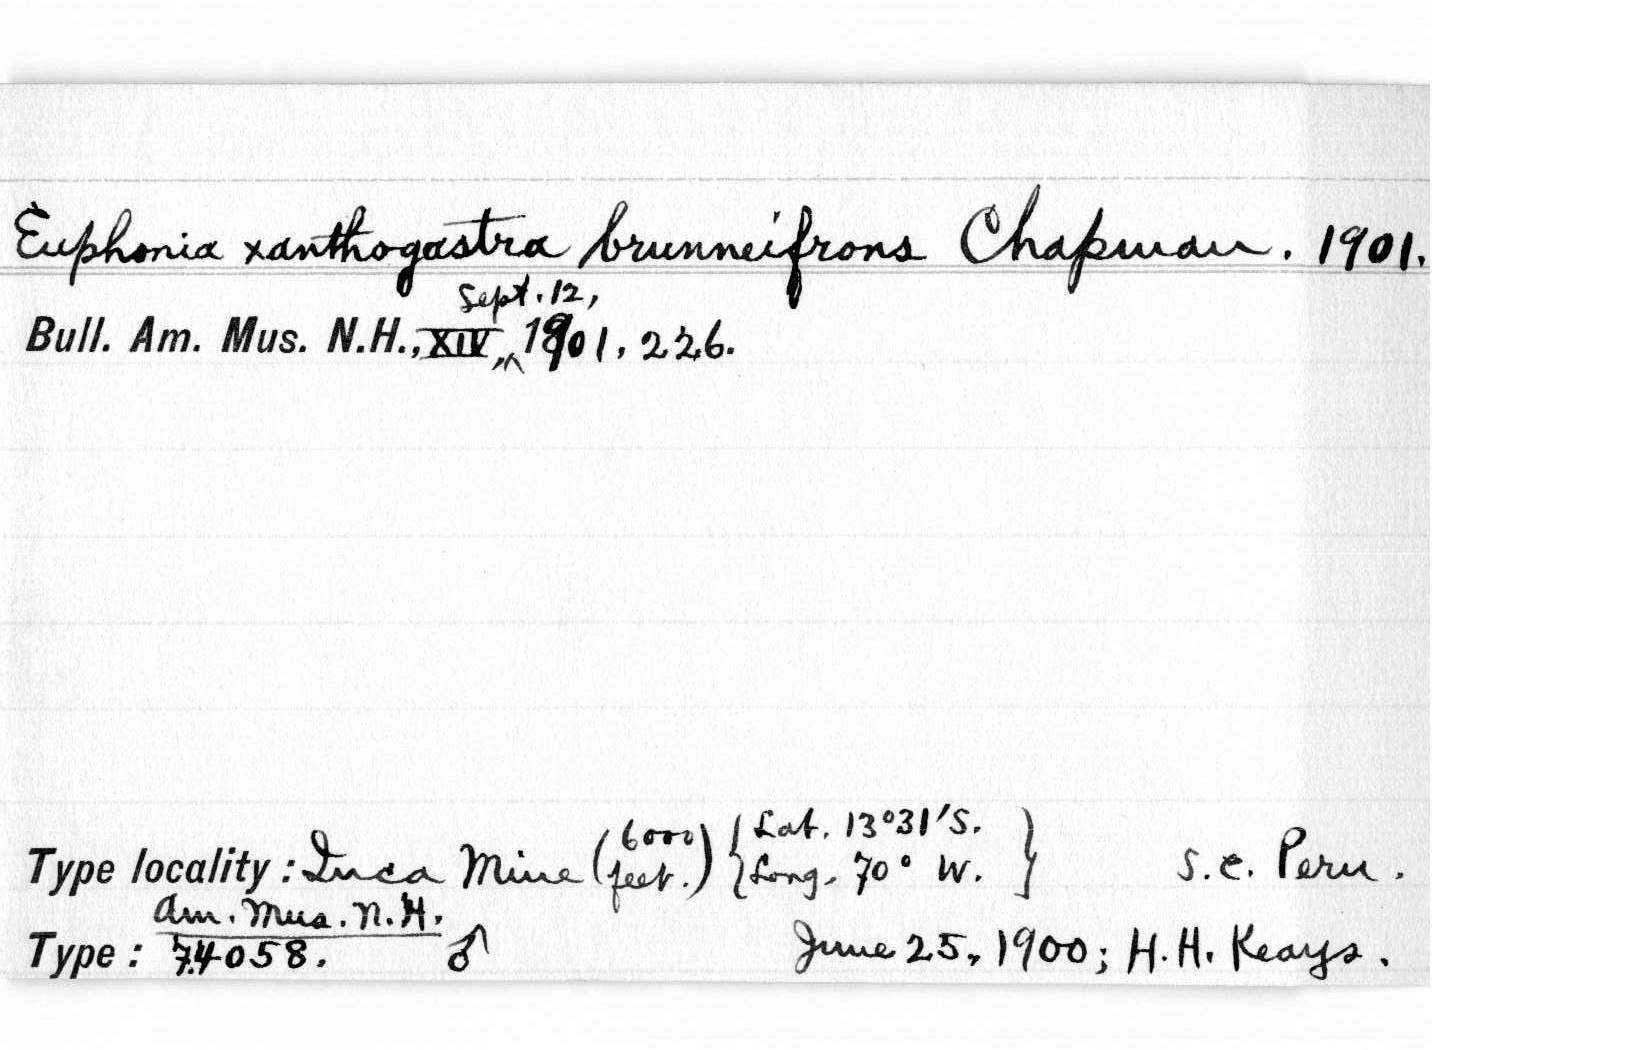 Euphonia xanthogastra brunneifrons Chapman. 1901.
Sept. 12,
Bull. Am. Mus. N.H., XIV, ^ 1901, 226.
Type locality: Inca Mine (6000 feet.) {Lat. 13°31'S. Long. 70° W.} S.E. Peru.
Am. Mus. N.H.
Type: 74058. ♂ June 25, 1900; H.H. Keays.